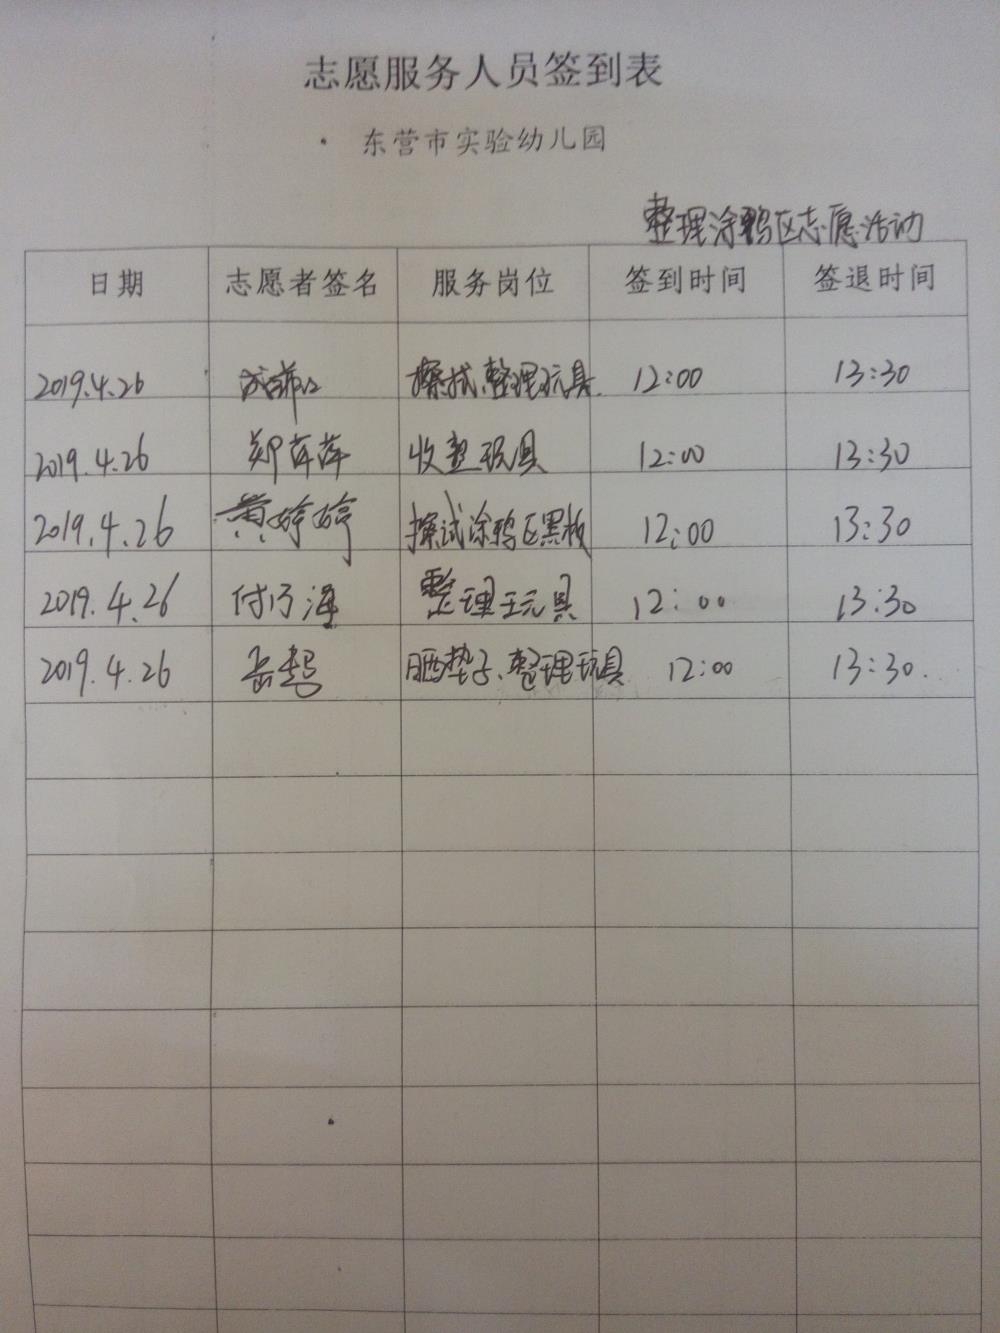 志愿服务人员签到表
东营市实验幼儿园
整理涂鸦区志愿活动
日期 志愿者签名 服务岗位 签到时间 签退时间
2019.4.26 擦拭、整理玩具 12:00 13:30
2019.4.26 郑萍萍 收整玩具 12:00 13:30
2019.4.26 黄婷婷 擦试涂鸦区黑板 12:00 13:30
2019.4.26 整理玩具 12:00 13:30
2019.4.26 晒垫子、整理玩具 12:00 13:30